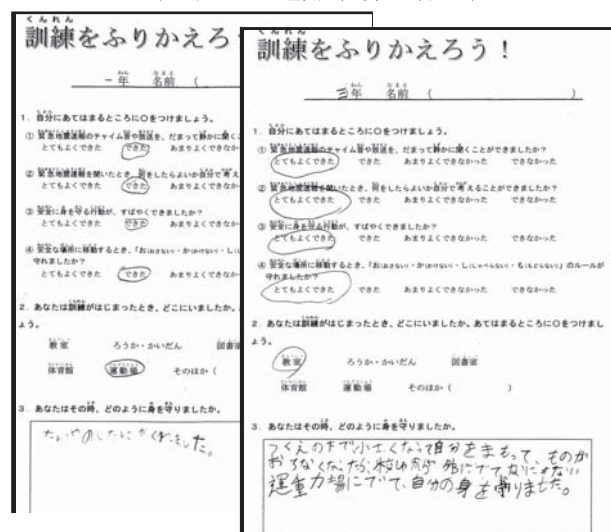 くんれん
訓練をふりかえろう
一年 名前 (
1. 自分にあてはまるところに○をつけましょう。
① 緊急地震速報のチャイム音や放送を、だまって静かに聞くこ
とてもよくできた できた あまりよくできなかっ
② 緊急地震速報を聞いたとき、何をしたらよいか自分で考え
とてもよくできた できた あまりよくできなかっ
③ 安全に身を守る行動が、すばやくできましたか?
とてもよくできた できた あまりよくできなかっ
④ 安全な場所に移動するとき、「お(おさない)・か(かけない)・し(し
守れましたか?
とてもよくできた できた あまりよくできなかっ
2. あなたは訓練がはじまったとき、どこにいましたか。
ょう。
教室 ろうか・かいだん 図書室
体育館 運動場 そのほか (
3. あなたはその時、どのように身を守りましたか。
たいやのしたにかくれました。
くんれん
訓練をふりかえろう!
三年 名前 ( )
1. 自分にあてはまるところに○をつけましょう。
① 緊急地震速報のチャイム音や放送を、だまって静かに聞くことができましたか?
とてもよくできた できた あまりよくできなかった できなかった
② 緊急地震速報を聞いたとき、何をしたらよいか自分で考えることができましたか?
とてもよくできた できた あまりよくできなかった できなかった
③ 安全に身を守る行動が、すばやくできましたか?
とてもよくできた できた あまりよくできなかった できなかった
④ 安全な場所に移動するとき、「お(おさない)・か(かけない)・し(しゃべらない)・も(もどらない)」のルールが
守れましたか?
とてもよくできた できた あまりよくできなかった できなかった
2. あなたは訓練がはじまったとき、どこにいましたか。あてはまるところに○をつけまし
ょう。
教室 ろうか・かいだん 図書室
体育館 運動場 そのほか ( )
3. あなたはその時、どのように身を守りましたか。
つくえの下で小さくなって自分をまもって、ものが
おちなくなったら、 外にでて、なにもない
運動場にでて、自分の身を守りました。